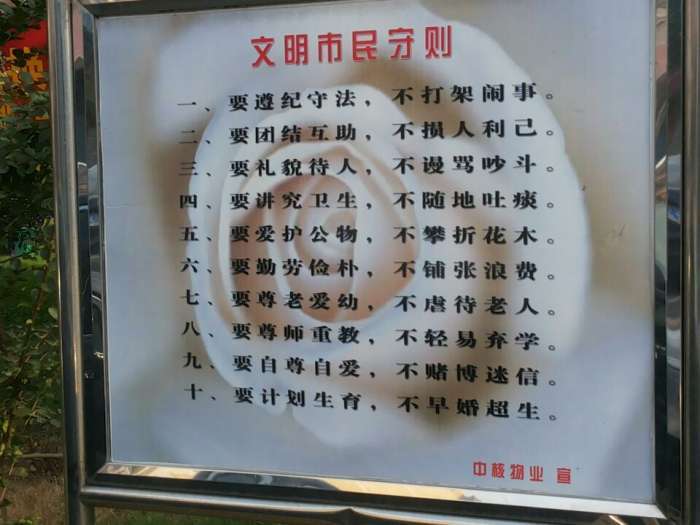 文明市民守则
一、要遵纪守法，不打架闹事。
二、要团结互助，不损人利己。
三、要礼貌待人，不谩骂吵斗。
四、要讲究卫生，不随地吐痰。
五、要爱护公物，不攀折花木。
六、要勤劳俭朴，不铺张浪费。
七、要尊老爱幼，不虐待老人。
八、要尊师重教，不轻易弃学。
九、要自尊自爱，不赌博迷信。
十、要计划生育，不早婚超生。
中核物业 宣